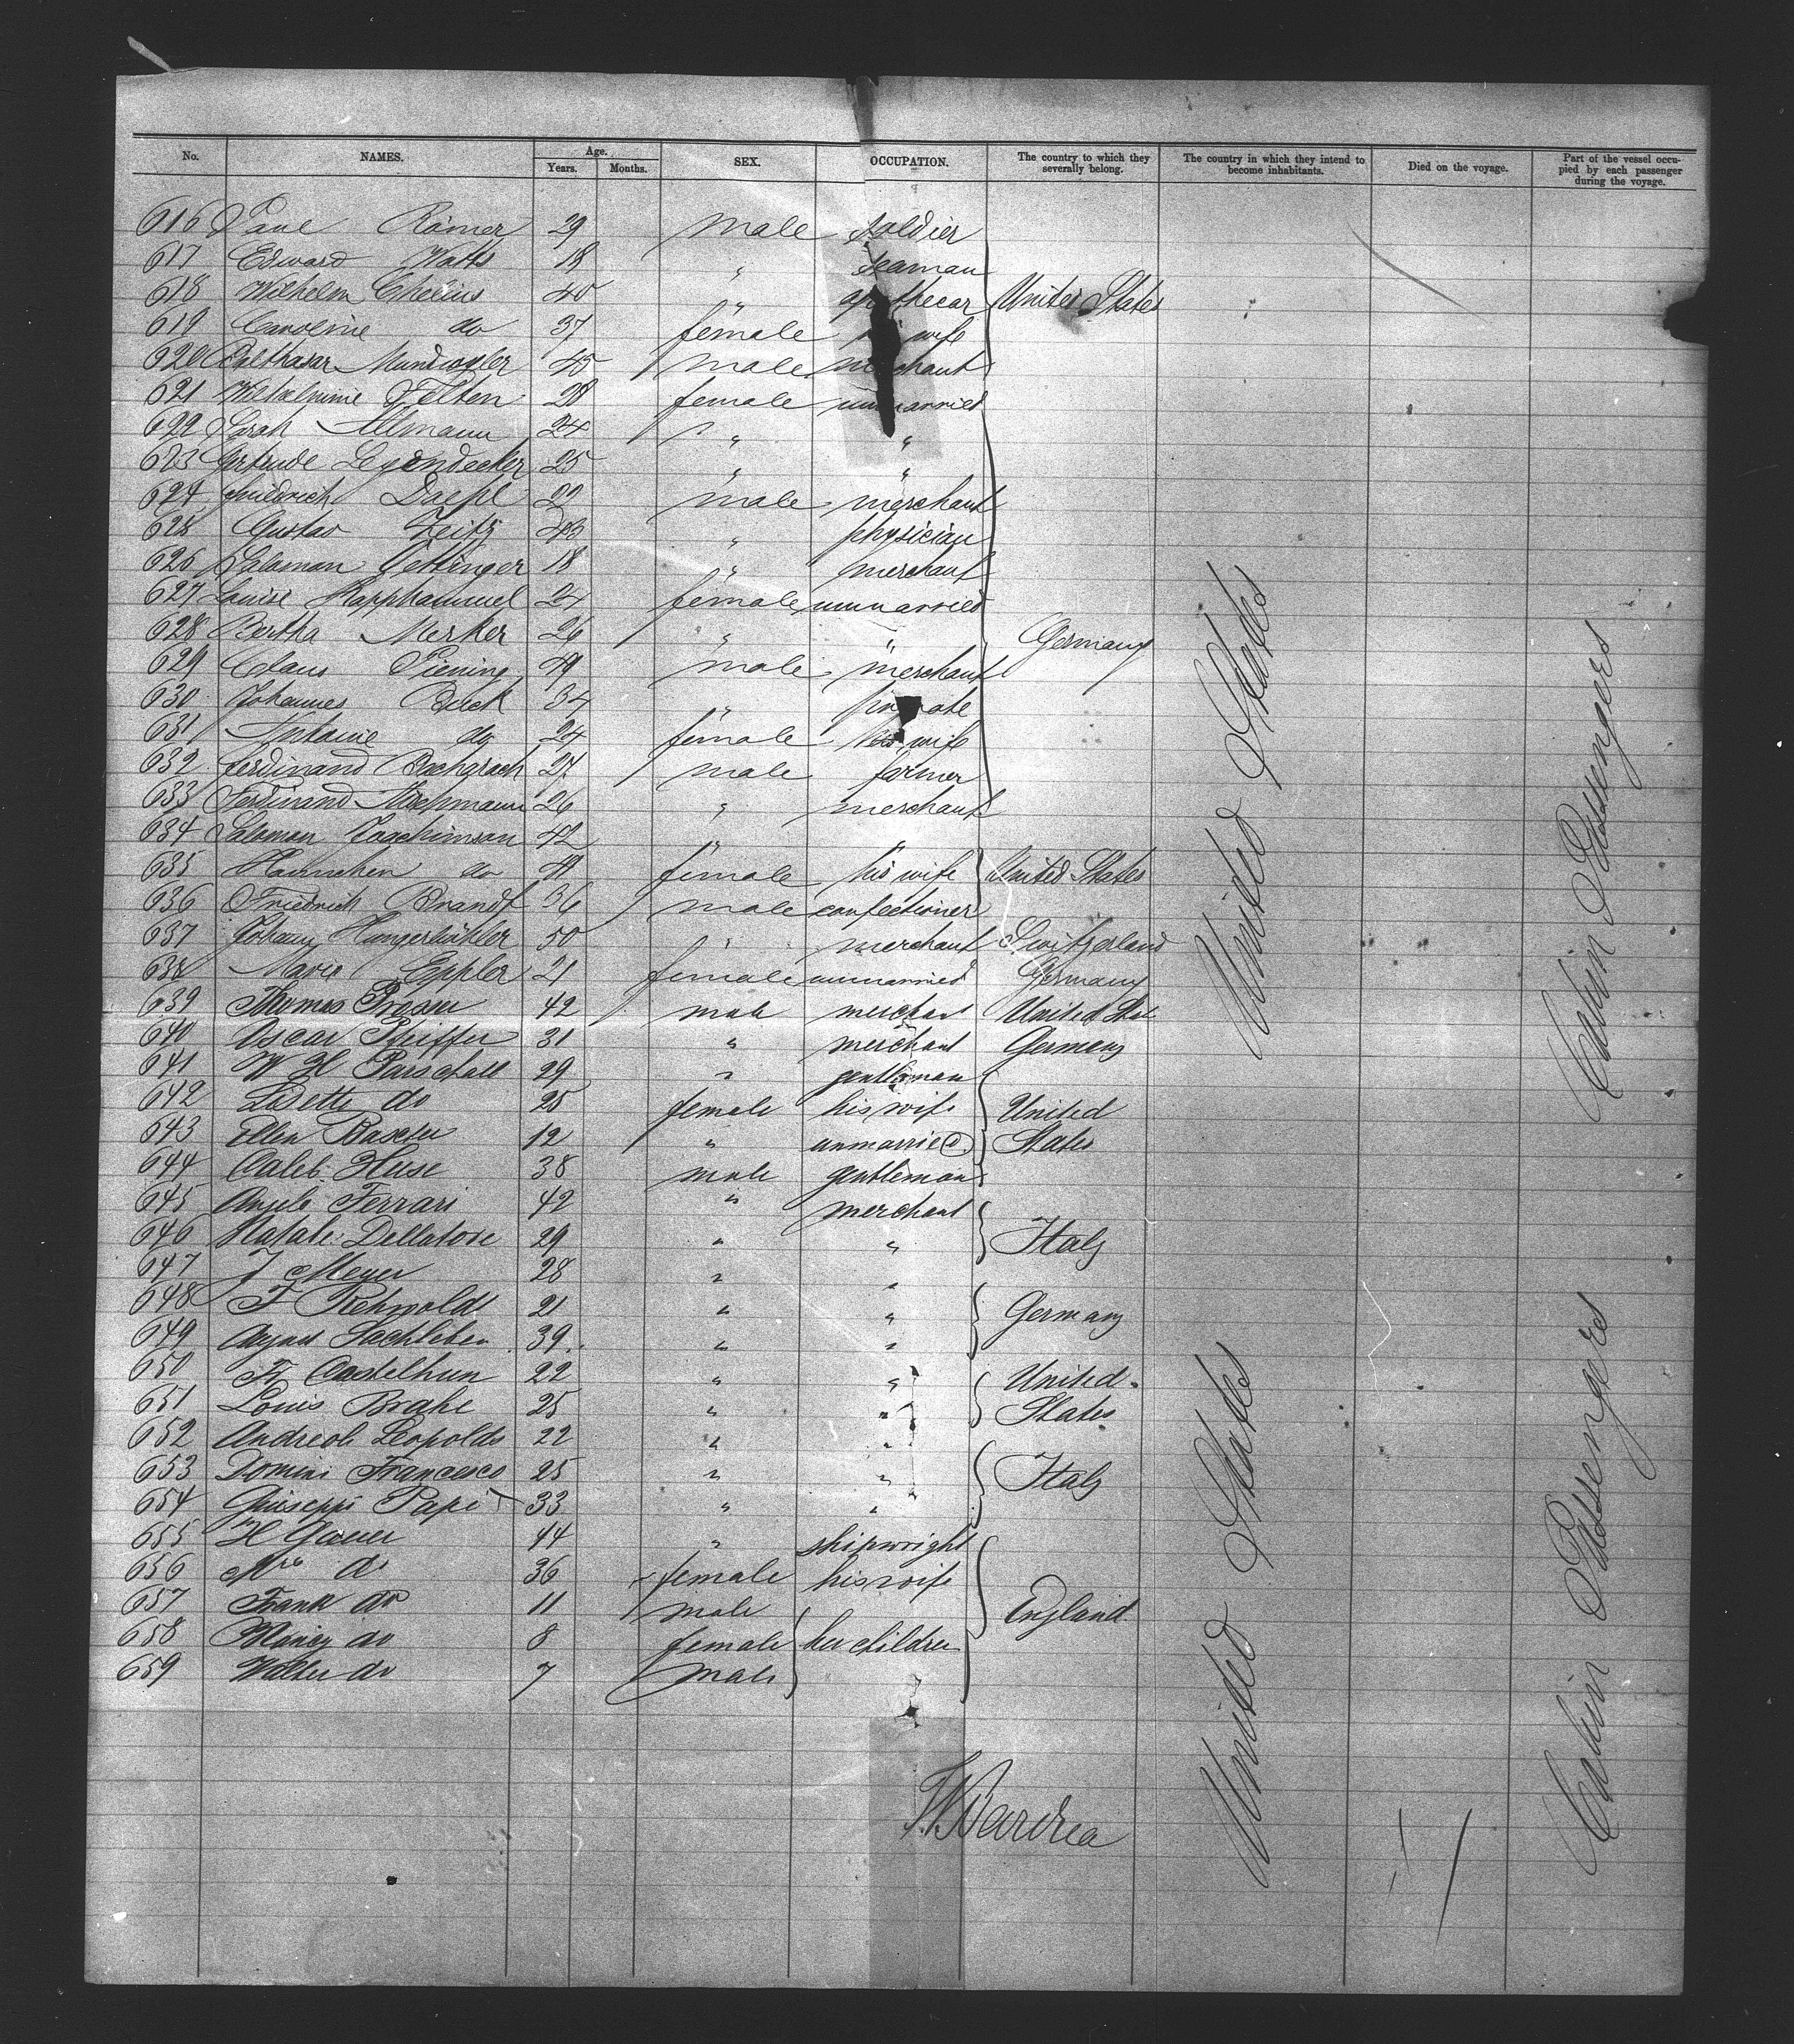 No. NAMES. Age. Years. Months. SEX. OCCUPATION. The country to which they severally belong. The country in which they intend to become inhabitants. Died on the voyage. Part of the vessel occupied by each passenger during the voyage.
616 Paul Römer 29 male soldier
617 Edward Watts 18 " seaman
618 Wilhelm Chelius 40 " apothecar United States
619 Caroline do 37 female wife
620 Balthasar 45 male merchant
621 Wilhelmine Felten 28 female unmarried
622 Sarah Allmann 24 " "
623 Gertrude Leyendecker 25 " "
624 Friedrich Daehl 22 male merchant
625 Gustav Zeitz 43 " physician
626 Salamon Oettinger 18 " merchant
627 Louise Happhammel 24 female unmarried
628 Bertha Merker 26 " " Germany
629 Claus Piening 49 male merchant
630 Johannes Buck 34 " private
631 do 24 female his wife
632 Ferdinand Bachgrach 27 male farmer
633 Ferdinand 26 " merchant
634 Salomon Joachimson 42 " "
635 Hannchen do female his wife United States
636 Friedrich Brandt 36 male confectioner
637 Johann Hungerbühler 50 " merchant Switzerland
638 Marie Eppler 21 female unmarried Germany
639 Thomas Prosser 42 male merchant United Stat
640 Oscar Pfeiffer 31 " merchant Germany
641 W H Parschall 29 " gentleman
642 Lisette do 25 female his wife United
643 Ellen Baxter 12 " unmarried States
644 Caleb Huse 38 male gentleman
645 Angelo Ferrari 42 " merchant
646 Natale Dellatore 29 " " Italy
647 J Meyer 28 " "
648 F Rehwoldt 21 " " Germany
649 August Sachleben 39 " "
650 Fr Castelhun 22 " " United
651 Louis Brahe 25 " " States
652 Andreoli Leopoldo 22 " "
653 Domini Francesco 25 " " Italy
654 Giuseppi Papi 33 " "
655 H Gauer 44 " shipwright
656 Mrs do 36 female his wife
657 Frank do 11 male England
658 do 8 female her children
659 Walter do 7 male
United States
Cabin Passengers
United States
Cabin Passengers